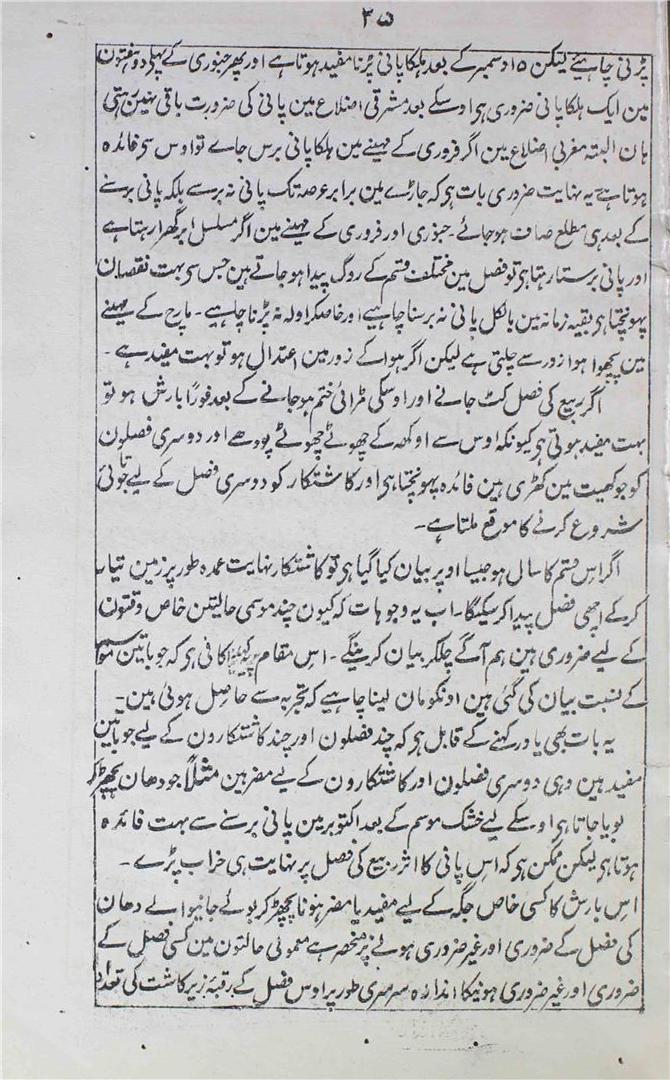 ۳۷
پڑنی چاہئے لیکن ۱۵ دسمبر کے بعد ہلکا پانی پڑنا مفید ہوتا ہے اور پھر جنوری کے پہلے دو ہفتون
مین ایک ہلکا پانی ضروری ہی اوسکے بعد مشرقی اضلاع مین پانی کی ضرورت باقی نہین رہتی
ہان البتہ مغربی اضلاع مین اگر فروری کے مہینے مین ہلکا پانی برس جاے تو اوس سی فائدہ
ہوتا ہے یہ نہایت ضروری بات ہی کہ جاڑے مین برابر عرصہ تک پانی نہ برسے بلکہ پانی برسنے
کے بعد ہی مطلع صاف ہو جائے۔ جنوری اور فروری کے مہینے مین اگر مسلسل ابر گھرا رہتا ہے
اور پانی برستا رہتا ہی تو فصل مین مختلف قسم کے روگ پیدا ہو جاتے ہین جس سی بہت نقصان
پہونچتا ہی بقیہ زمانہ مین بالکل پانی نہ برسنا چاہیے اور خاصکر اولہ نہ پڑنا چاہیے۔ مارچ کے مہینے
مین پچھوا ہوا زور سے چلتی ہے لیکن اگر ہوا کے زور مین اعتدال ہو تو بہت مفید ہے۔
اگر ربیع کی فصل کٹ جانے اور اوسکی مڑائی ختم ہو جانے کے بعد فورًا بارش ہو تو
بہت مفید ہوتی ہی کیونکہ اوس سے اوکھ کے چھوٹے چھوٹے پودھے اور دوسری فصلون
کو جو کھیت مین کھڑی ہین فائدہ پہونچتا ہی اور کاشتکار کو دوسری فصل کے لیے جوتائی
شروع کرنے کا موقع ملتا ہے۔
اگر اس قسم کا سال ہو جیسا اوپر بیان کیا گیا ہی تو کاشتکار نہایت عمدہ طور پر زمین تیار
کرکے اچھی فصل پیدا کر سکیگا۔ اب یہ وجوہات کہ کیون چند موسمی حالتین خاص وقتون
کے لیے ضروری ہین ہم آگے چلکر بیان کرینگے۔ اس مقام پر یہ کہنا کافی ہی کہ جو باتین موسم
کے نسبت بیان کی گئی ہین اونکو مان لینا چاہیے کہ تجربہ سے حاصل ہوئی ہین۔
یہ بات بھی یاد رکہنے کے قابل ہی کہ چند فصلون اور چند کاشتکارون کے لیے جو باتین
مفید ہین وہی دوسری فصلون اور کاشتکارون کے لیے مضر ہین مثلًا جو دھان پچھڑ کر
بویا جاتا ہی اوسکے لیے خشک موسم کے بعد اکتوبر مین پانی برسنے سے بہت فائدہ
ہوتا ہی لیکن ممکن ہی کہ اس پانی کا اثر ربیع کی فصل پر نہایت ہی خراب پڑے۔
اس بارش کا کسی خاص جگہ کے لیے مفید یا مضر ہونا پچھڑ کر بوئے جانیوالے دھان
کی فصل کے ضروری اور غیر ضروری ہونے پر منحصر ہے معمولی حالتون مین کسی فصل کے
ضروری اور غیر ضروری ہونیکا اندازہ سرسری طور پر اوس فصل کے رقبۂ زیر کاشت کی تعداد